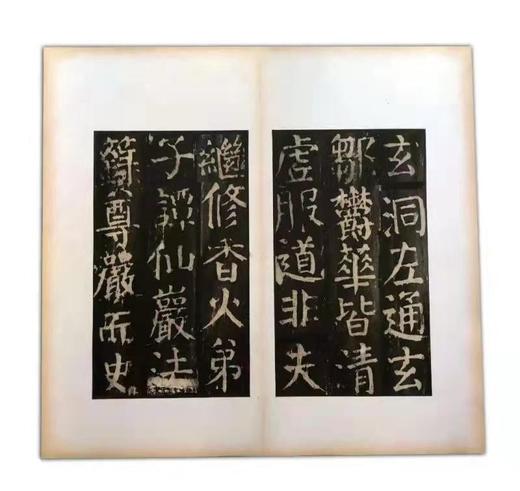 玄洞左通玄
鄒鬱華皆清
虛服道非夫
繼修香火弟
子譚仙巖法
籙尊嚴而史